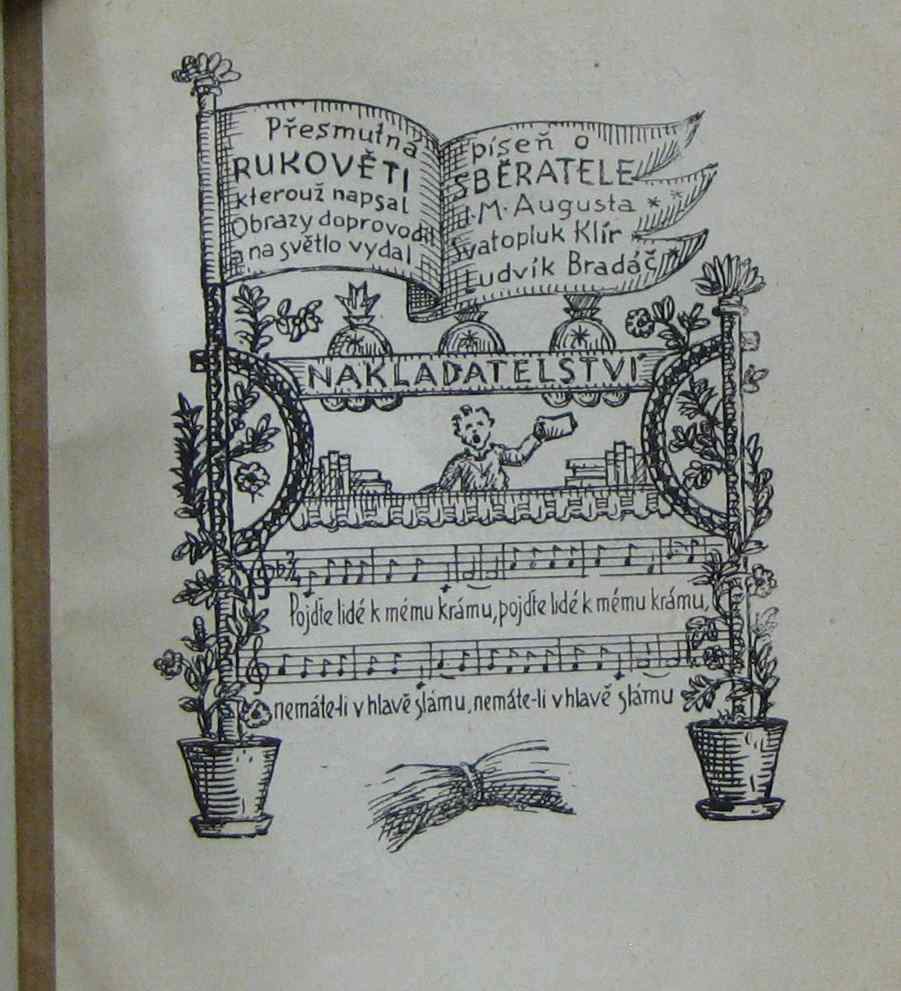 Přesmutná píseň o
RUKOVĚTI SBĚRATELE
kterouž napsal J. M. Augusta
Obrazy doprovodil Svatopluk Klír
a na světlo vydal Ludvík Bradáč
NAKLADATELSTVÍ
Pojďte lidé k mému krámu, pojďte lidé k mému krámu,
nemáte-li v hlavě slámu, nemáte-li v hlavě slámu